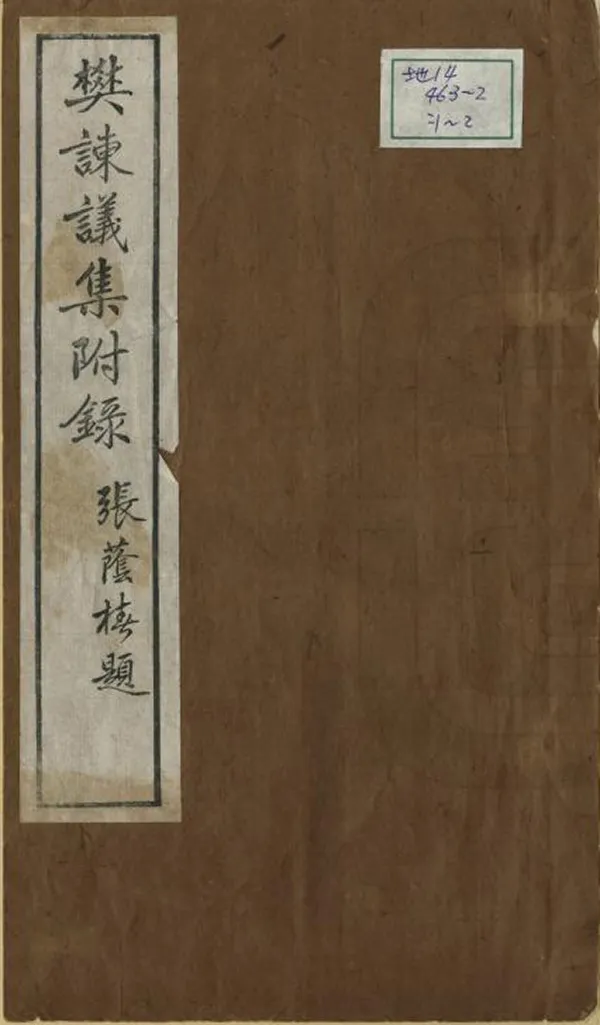 樊諫議集附錄
張蔭椿題
地14
463-2
:1~2